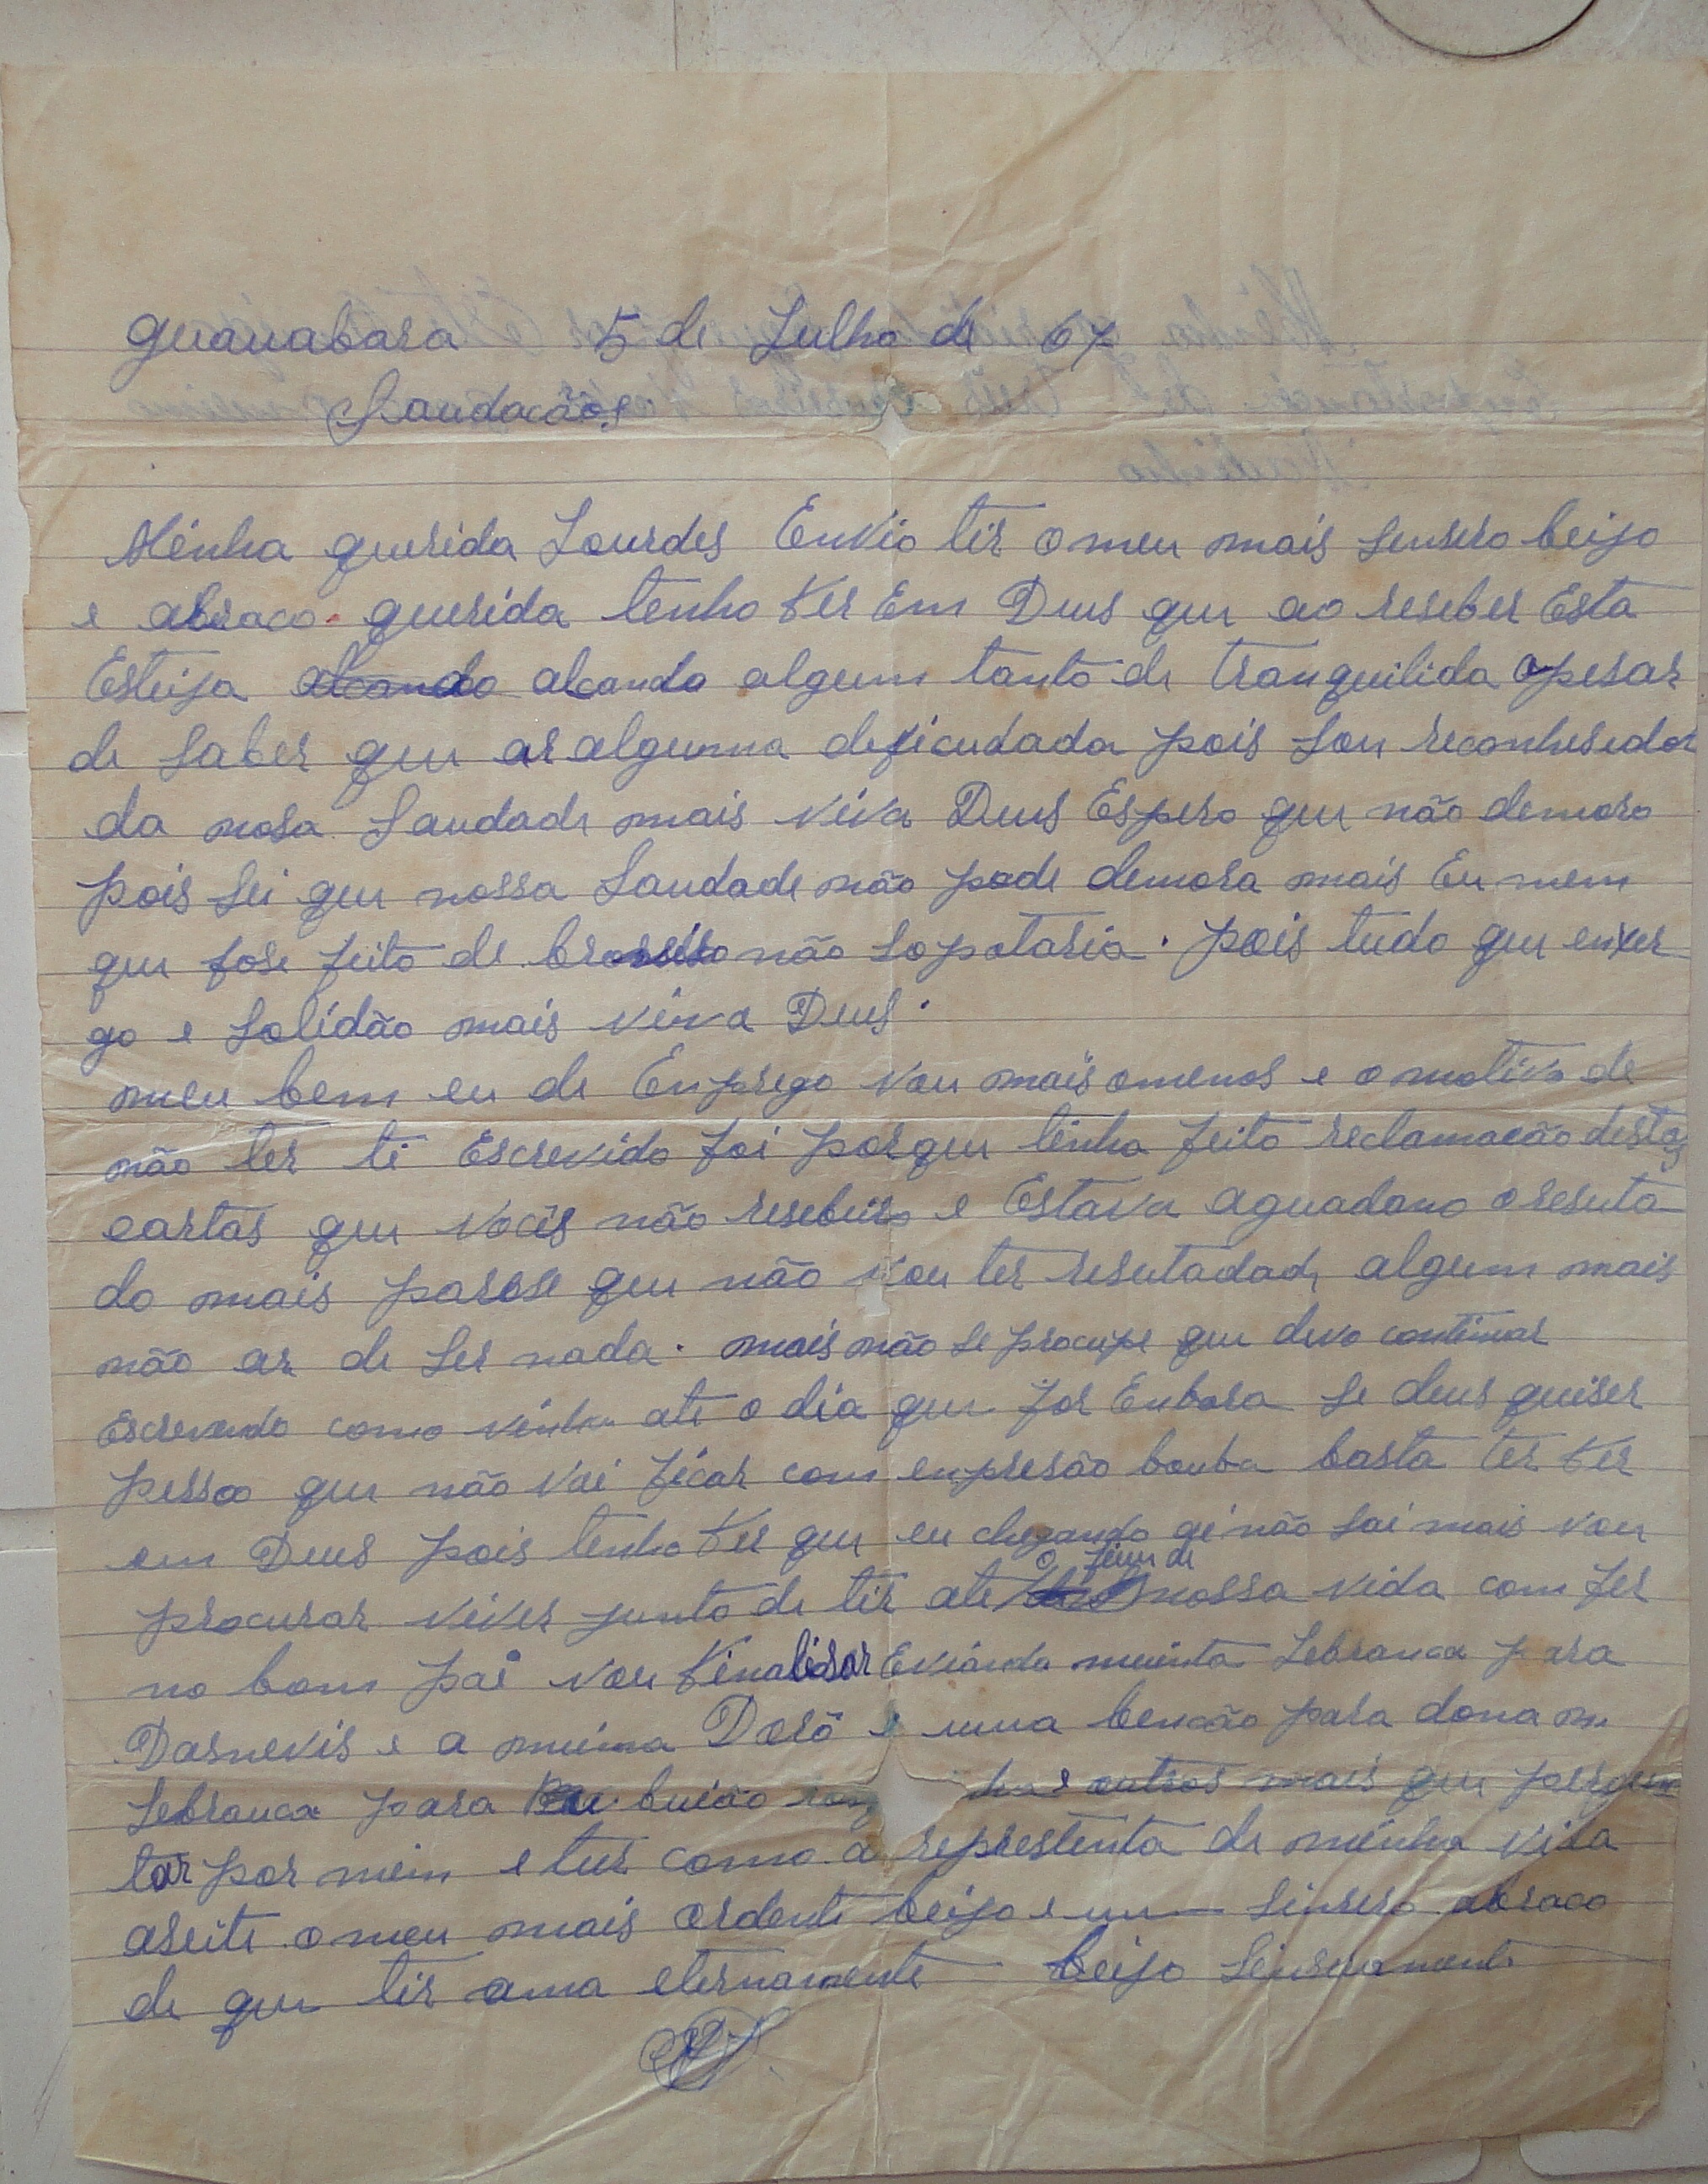 Guanabara 5 de Julho de 67
Saudacãos
Minha querida Lourdes Envio tir o meu mais sensero beijo
e abraco. querida tenho fer Em Deus que ao reseber Esta
Esteija alcando algum tanto de tranquilida apesar
de saber que ar alguma deficudada pois sou reconhesedor
da nosa saudade mais viva Deus Espero que não demoro
pois sei que nossa saudade não pode demora mais Eu nem
que fose feito de não sopotaria. pois tudo que enxer
go e solidão mais viva Deus.
meu bem eu de Enprego vou mais omenos e o motivo de
não ter ti Escrevido foi porque tinha feito reclamacão destas
cartas que vocês não resebeiro e Estava aguadano o resuta
do mais parese que não vou ter resutadade algum mais
não ar de ser nada. mais não se procupe que devo continuar
Escrevendo como vinha ate o dia que for Enbora se deus quiser
pesso que não vai ficar com enpresão bouba basta ter fer
em Deus pois tenho fer que eu chegando qi não sai mais vou
procurar viver junto de tir ate o fim de nossa vida com fer
no bom pai vou finalisar Eviando muinta lebranca para
Dasnevis e a muima Dosô e uma bencão para dona m.
lebranca para buião e outros mais que pergun
tar por mim e tur como a represtenta de minha vida
aseite o meu mais ardente beijo e um sinsero abraco
de que tir ama eternamente beijo